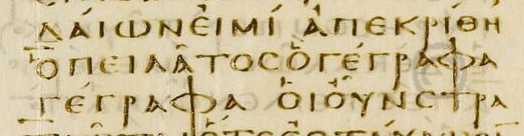 ΔΑΙΩΝΕΙΜΙ ΑΠΕΚΡΙΘΗ
ὉΠΕΙΛΑΤΟΣὉΓΕΓΡΑΦΑ
ΓΕΓΡΑΦΑ ΟΙΟΥΝΣΤΡΑ